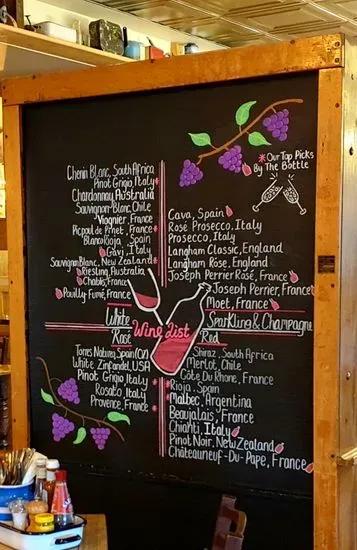 *Our Top Picks
By The Bottle
Chenin Blanc, South Africa
Pinot Grigio, Italy
Chardonnay, Australia
Sauvignon Blanc, Chile
Viognier, France
Picpoul de Pinet, France
Blanco Rioja, Spain
Gavi, Italy
Sauvignon Blanc, New Zealand
Riesling, Australia
Chablis, France
Pouilly Fumé, France
White
Cava, Spain
Rosé Prosecco, Italy
Prosecco, Italy
Langham Classic, England
Langham Rose, England
Joseph Perrier Rosé, France
Joseph Perrier, France
Moet, France
Sparkling & Champagne
Wine List
Rosé
Torres Natureo, Spain
White Zinfandel, USA
Pinot Grigio, Italy
Rosato, Italy
Provence, France
Red
Shiraz, South Africa
Merlot, Chile
Côte Du Rhone, France
Rioja, Spain
Malbec, Argentina
Beaujolais, France
Chianti, Italy
Pinot Noir, New Zealand
Châteauneuf-Du-Pape, France